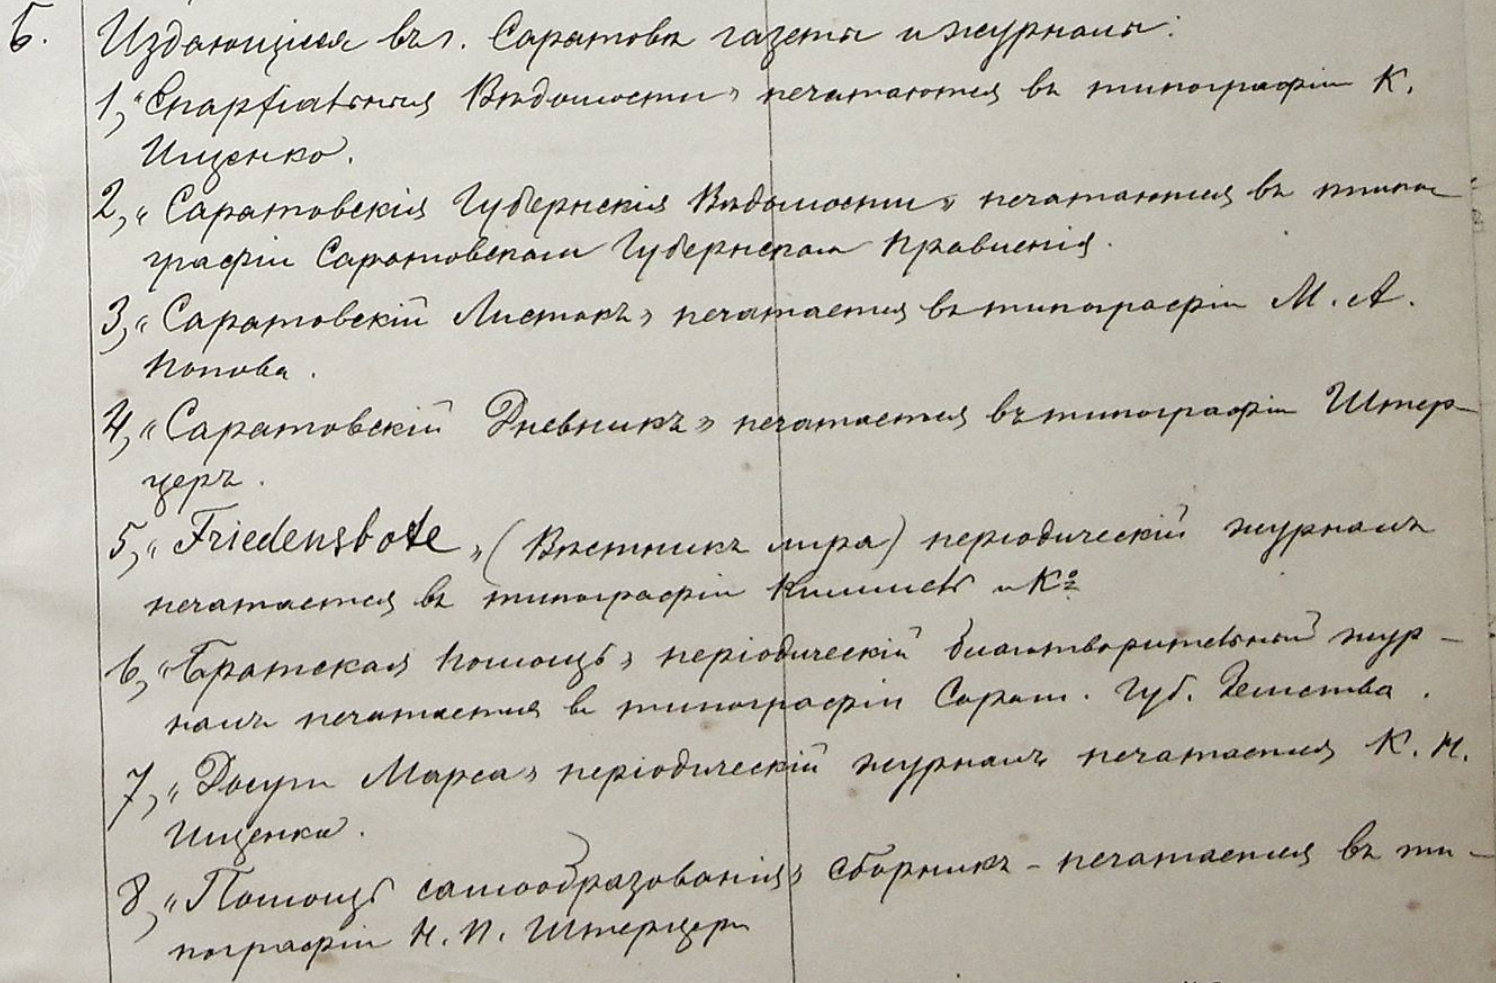 Б. Издающіеся въ г. Саратовѣ газеты и журналы:
1, „Епархіальныя Вѣдомости" печатаются въ типографіи К.
Ищенко.
2, „Саратовскія Губернскія Вѣдомости" печатаются въ типо-
графіи Саратовскаго Губернскаго Правленія.
3, „Саратовскій Листокъ" печатается въ типографіи М. А.
Попова.
4, „Саратовскій Дневникъ" печатается въ типографіи Штер-
церъ.
5, „Friedensbote" (Вѣстникъ мира) періодическій журналъ
печатается въ типографіи Киммель и Кº
6, „Братская Помощь" періодическій благотворительный жур-
налъ печатается въ типографіи Сарат. Губ. Земства.
7, „Досуги Марса" періодическій журналъ печатается К. Н.
Ищенко.
8, „Помощь самообразованія" сборникъ - печатается въ ти-
пографіи Н. П. Штерцеръ